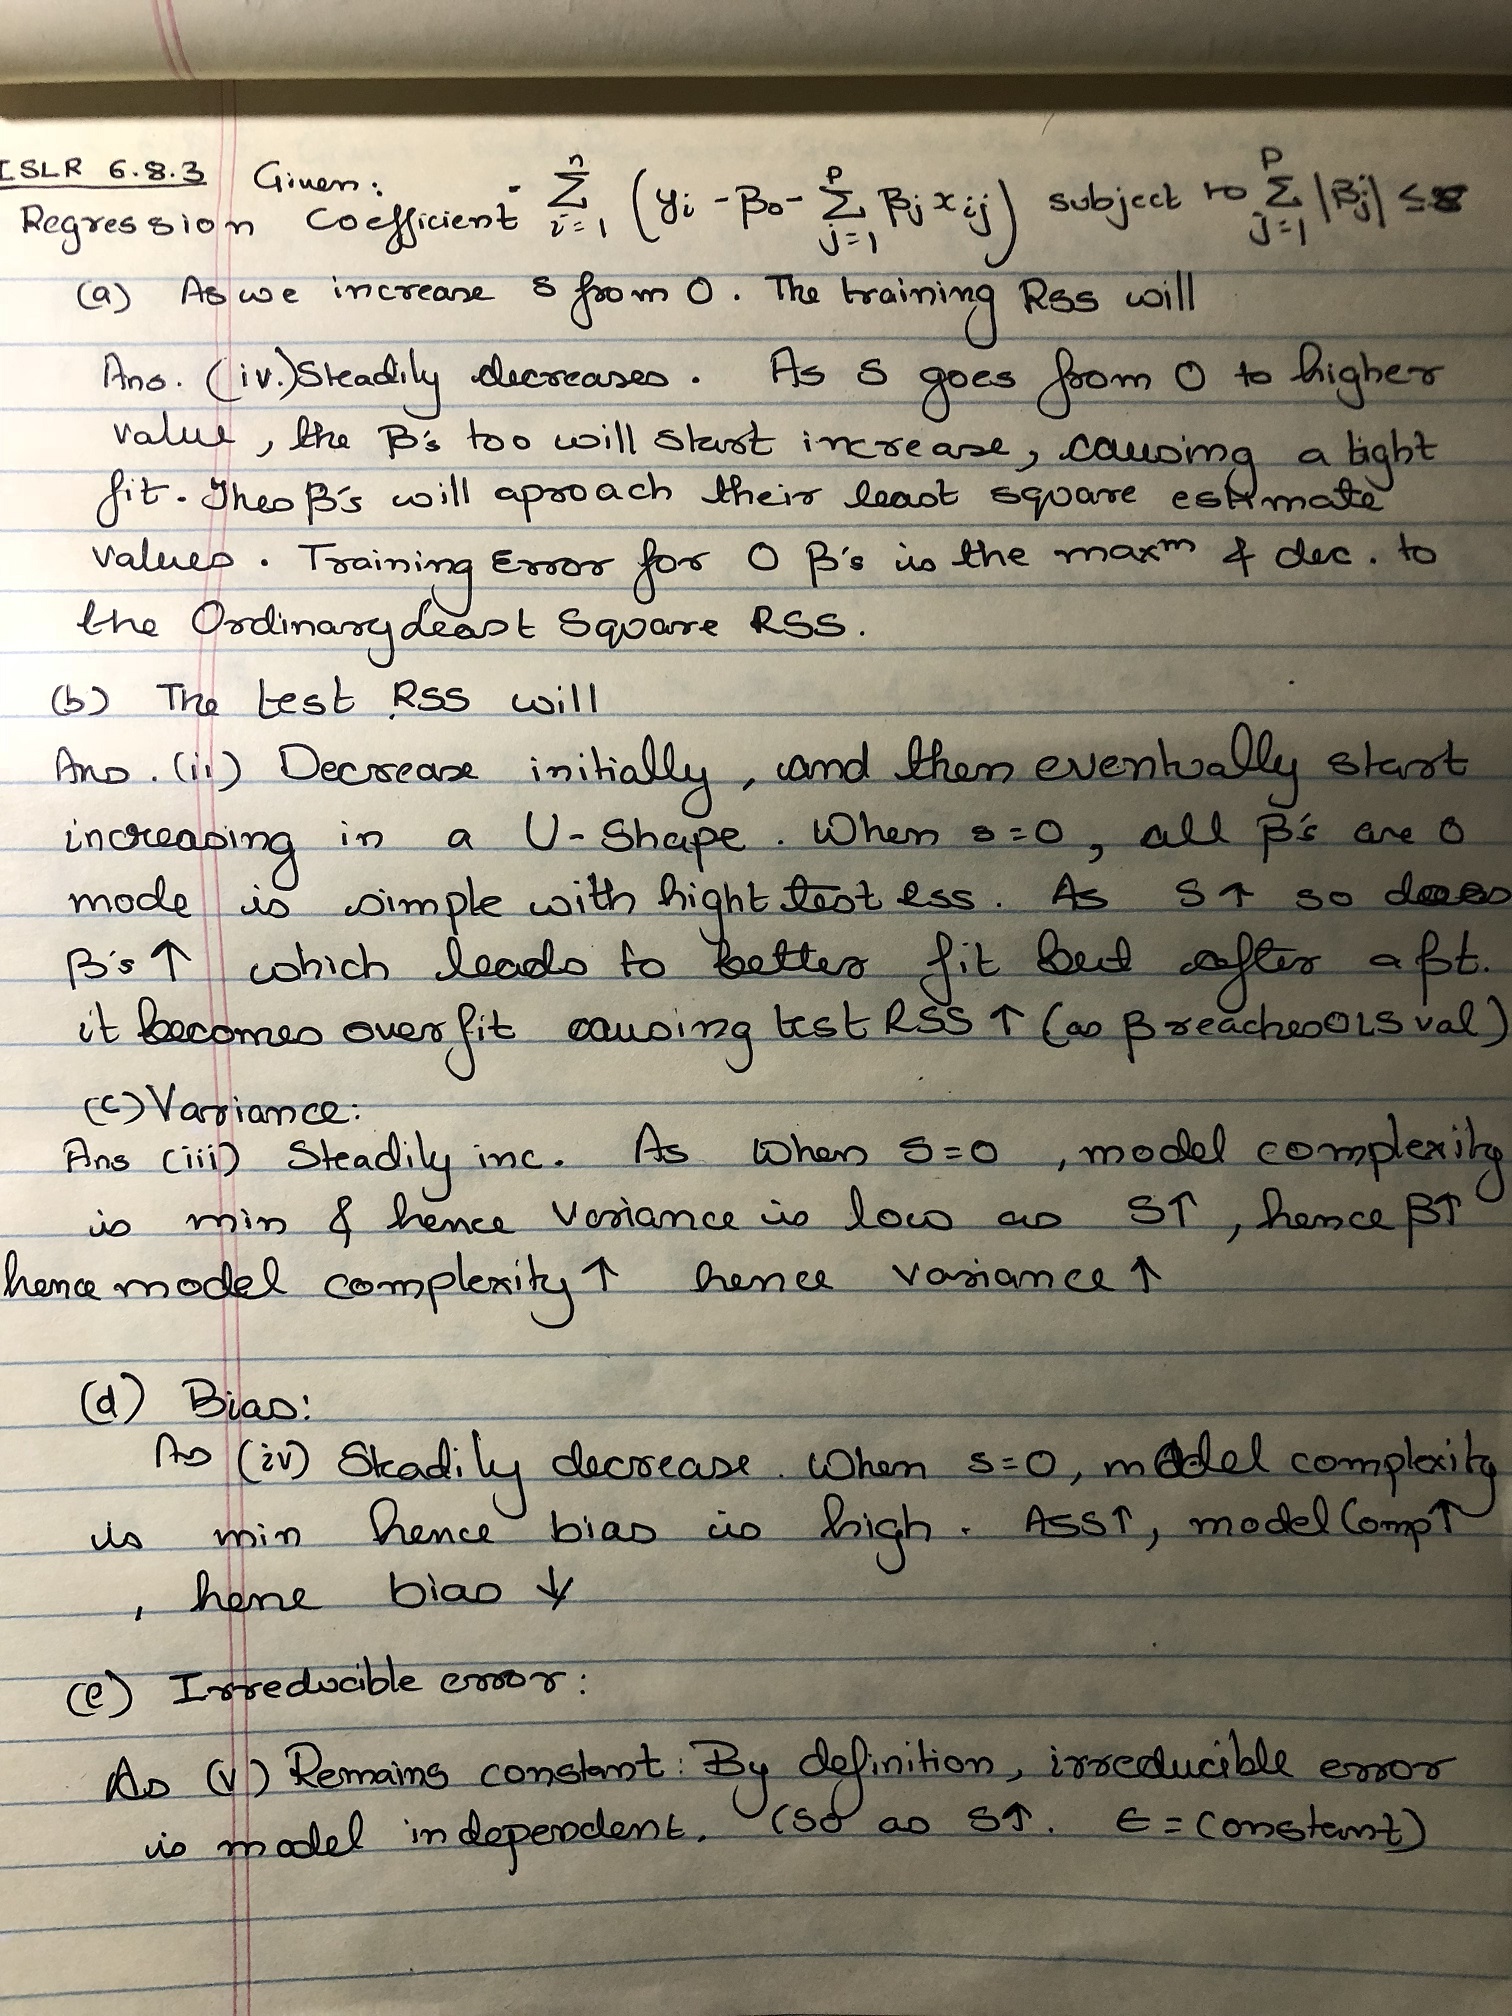 ISLR 6.8.3 Given: - n Σ i=1 (yi - β0 - p Σ j=1 βj xij) subject to p Σ j=1 |βj| ≤ s
Regression Coefficient
(a) As we increase s from 0. The training RSS will
Ans. (iv.) Steadily decreases. As s goes from 0 to higher
value, the β's too will start increase, causing a tight
fit. Theo β's will aproach their least square estimate
values. Training Error for 0 β's is the maxm & dec. to
the Ordinary Least Square RSS.
(b) The test RSS will
Ans. (ii) Decrease initially, and then eventually start
increasing in a U-Shape. When s=0, all β's are 0
mode is simple with hight test RSS. As S ↑ so does
β's ↑ which leads to better fit but after a pt.
it becomes overfit causing test RSS ↑ (as β reaches OLS val)
(c) Variance:
Ans (iii) Steadily inc. As when S=0, model complexity
is min & hence variance is low as S↑, hence β↑
hence model complexity ↑ hence variance ↑
(d) Bias:
As (iv) Steadily decrease. When s=0, model complexity
is min hence bias is high. As S↑, model Comp↑
, hene bias ↓
(e) Irreducible error:
As (v) Remains constant: By definition, irreducible error
is model independent. (so as S↑. ∈ = constant)